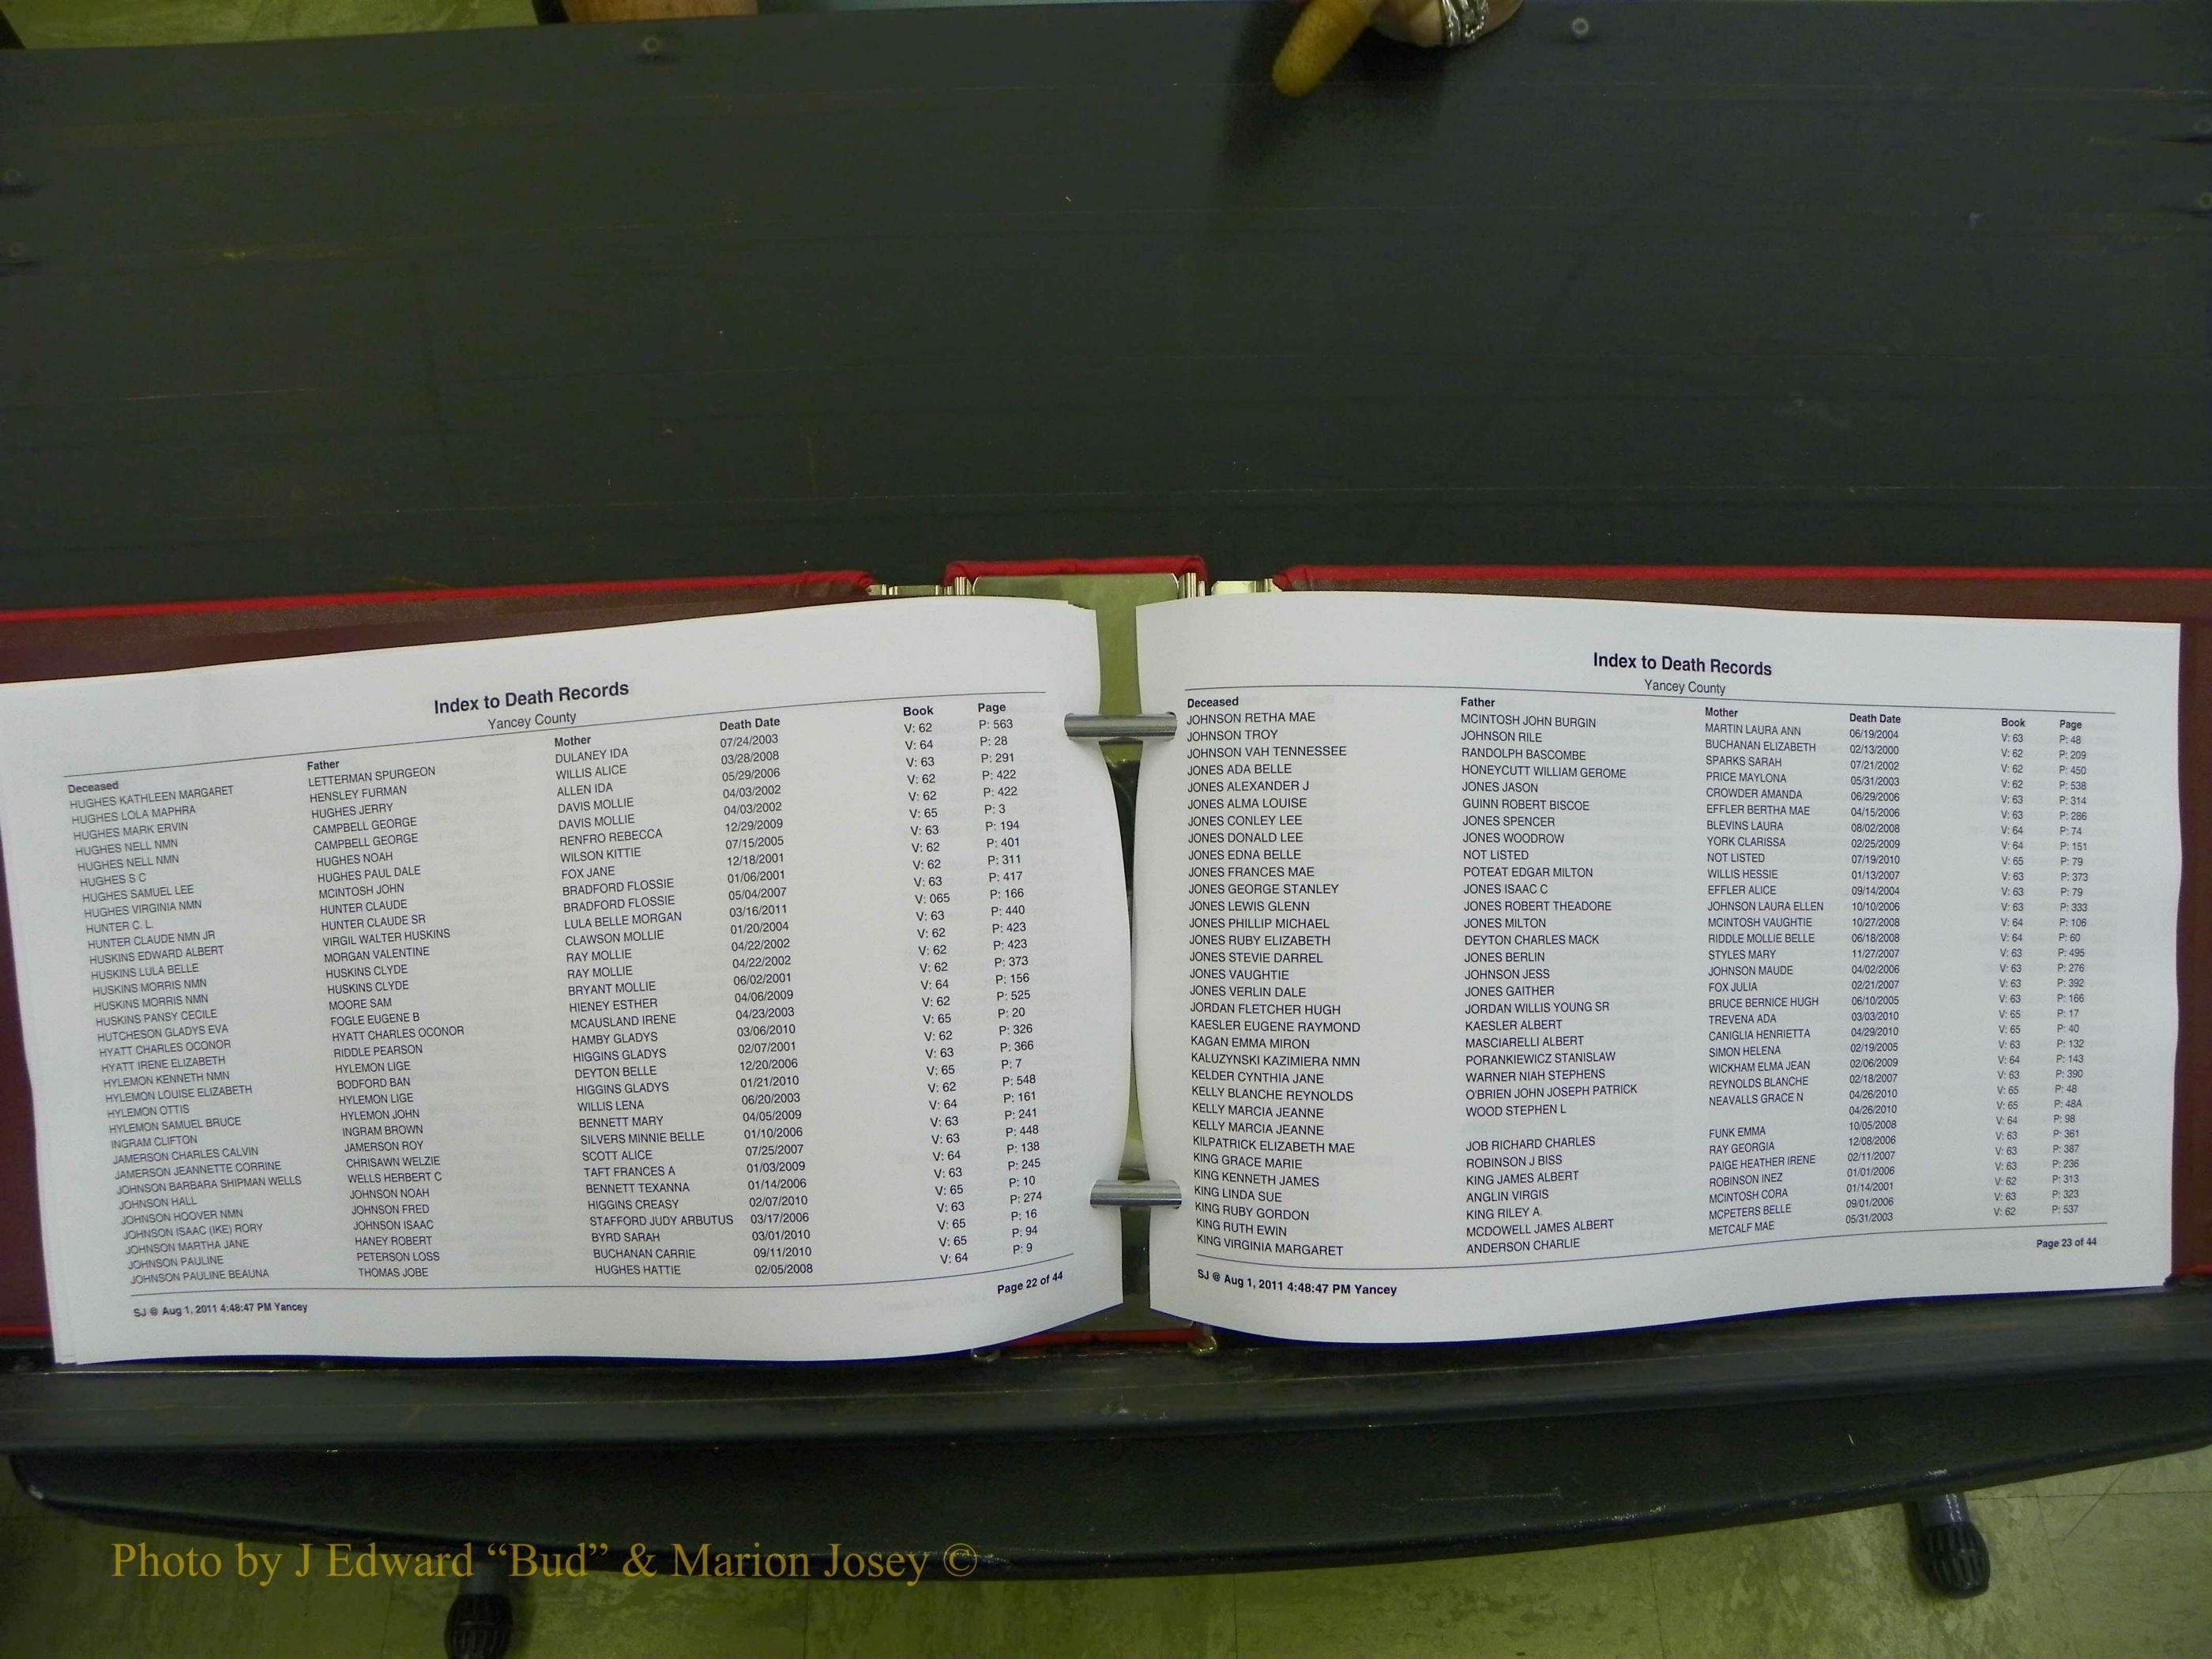 Index to Death Records
Yancey County
Deceased Father Mother Death Date Book Page
HUGHES KATHLEEN MARGARET LETTERMAN SPURGEON DULANEY IDA 07/24/2003 V: 62 P: 563
HUGHES LOLA MAPHRA HENSLEY FURMAN WILLIS ALICE 03/28/2008 V: 64 P: 28
HUGHES MARK ERVIN HUGHES JERRY ALLEN IDA 05/29/2006 V: 63 P: 291
HUGHES NELL NMN CAMPBELL GEORGE DAVIS MOLLIE 04/03/2002 V: 62 P: 422
HUGHES NELL NMN CAMPBELL GEORGE DAVIS MOLLIE 04/03/2002 V: 62 P: 422
HUGHES S C HUGHES NOAH RENFRO REBECCA 12/29/2009 V: 65 P: 3
HUGHES SAMUEL LEE HUGHES PAUL DALE WILSON KITTIE 07/15/2005 V: 63 P: 194
HUGHES VIRGINIA NMN MCINTOSH JOHN FOX JANE 12/18/2001 V: 62 P: 401
HUNTER C. L. HUNTER CLAUDE BRADFORD FLOSSIE 01/06/2001 V: 62 P: 311
HUNTER CLAUDE NMN JR HUNTER CLAUDE SR BRADFORD FLOSSIE 05/04/2007 V: 63 P: 417
HUSKINS EDWARD ALBERT VIRGIL WALTER HUSKINS LULA BELLE MORGAN 03/16/2011 V: 065 P: 166
HUSKINS LULA BELLE MORGAN VALENTINE CLAWSON MOLLIE 01/20/2004 V: 63 P: 440
HUSKINS MORRIS NMN HUSKINS CLYDE RAY MOLLIE 04/22/2002 V: 62 P: 423
HUSKINS MORRIS NMN HUSKINS CLYDE RAY MOLLIE 04/22/2002 V: 62 P: 423
HUSKINS PANSY CECILE MOORE SAM BRYANT MOLLIE 06/02/2001 V: 62 P: 373
HUTCHESON GLADYS EVA FOGLE EUGENE B HIENEY ESTHER 04/06/2009 V: 64 P: 156
HYATT CHARLES OCONOR HYATT CHARLES OCONOR MCAUSLAND IRENE 04/23/2003 V: 62 P: 525
HYATT IRENE ELIZABETH RIDDLE PEARSON HAMBY GLADYS 03/06/2010 V: 65 P: 20
HYLEMON KENNETH NMN HYLEMON LIGE HIGGINS GLADYS 02/07/2001 V: 62 P: 326
HYLEMON LOUISE ELIZABETH BODFORD BAN DEYTON BELLE 12/20/2006 V: 63 P: 366
HYLEMON OTTIS HYLEMON LIGE HIGGINS GLADYS 01/21/2010 V: 65 P: 7
HYLEMON SAMUEL BRUCE HYLEMON JOHN WILLIS LENA 06/20/2003 V: 62 P: 548
INGRAM CLIFTON INGRAM BROWN BENNETT MARY 04/05/2009 V: 64 P: 161
JAMERSON CHARLES CALVIN JAMERSON ROY SILVERS MINNIE BELLE 01/10/2006 V: 63 P: 241
JAMERSON JEANNETTE CORRINE CHRISAWN WELZIE SCOTT ALICE 07/25/2007 V: 63 P: 448
JOHNSON BARBARA SHIPMAN WELLS WELLS HERBERT C TAFT FRANCES A 01/03/2009 V: 64 P: 138
JOHNSON HALL JOHNSON NOAH BENNETT TEXANNA 01/14/2006 V: 63 P: 245
JOHNSON HOOVER NMN JOHNSON FRED HIGGINS CREASY 02/07/2010 V: 65 P: 10
JOHNSON ISAAC (IKE) RORY JOHNSON ISAAC STAFFORD JUDY ARBUTUS 03/17/2006 V: 63 P: 274
JOHNSON MARTHA JANE HANEY ROBERT BYRD SARAH 03/01/2010 V: 65 P: 16
JOHNSON PAULINE PETERSON LOSS BUCHANAN CARRIE 09/11/2010 V: 65 P: 94
JOHNSON PAULINE BEAUNA THOMAS JOBE HUGHES HATTIE 02/05/2008 V: 64 P: 9
SJ @ Aug 1, 2011 4:48:47 PM Yancey Page 22 of 44
Index to Death Records
Yancey County
Deceased Father Mother Death Date Book Page
JOHNSON RETHA MAE MCINTOSH JOHN BURGIN MARTIN LAURA ANN 06/19/2004 V: 63 P: 48
JOHNSON TROY JOHNSON RILE BUCHANAN ELIZABETH 02/13/2000 V: 62 P: 209
JOHNSON VAH TENNESSEE RANDOLPH BASCOMBE SPARKS SARAH 07/21/2002 V: 62 P: 450
JONES ADA BELLE HONEYCUTT WILLIAM GEROME PRICE MAYLONA 05/31/2003 V: 62 P: 538
JONES ALEXANDER J JONES JASON CROWDER AMANDA 06/29/2006 V: 63 P: 314
JONES ALMA LOUISE GUINN ROBERT BISCOE EFFLER BERTHA MAE 04/15/2006 V: 63 P: 286
JONES CONLEY LEE JONES SPENCER BLEVINS LAURA 08/02/2008 V: 64 P: 74
JONES DONALD LEE JONES WOODROW YORK CLARISSA 02/25/2009 V: 64 P: 151
JONES EDNA BELLE NOT LISTED NOT LISTED 07/19/2010 V: 65 P: 79
JONES FRANCES MAE POTEAT EDGAR MILTON WILLIS HESSIE 01/13/2007 V: 63 P: 373
JONES GEORGE STANLEY JONES ISAAC C EFFLER ALICE 09/14/2004 V: 63 P: 79
JONES LEWIS GLENN JONES ROBERT THEADORE JOHNSON LAURA ELLEN 10/10/2006 V: 63 P: 333
JONES PHILLIP MICHAEL JONES MILTON MCINTOSH VAUGHTIE 10/27/2008 V: 64 P: 106
JONES RUBY ELIZABETH DEYTON CHARLES MACK RIDDLE MOLLIE BELLE 06/18/2008 V: 64 P: 60
JONES STEVIE DARREL JONES BERLIN STYLES MARY 11/27/2007 V: 63 P: 495
JONES VAUGHTIE JOHNSON JESS JOHNSON MAUDE 04/02/2006 V: 63 P: 276
JONES VERLIN DALE JONES GAITHER FOX JULIA 02/21/2007 V: 63 P: 392
JORDAN FLETCHER HUGH JORDAN WILLIS YOUNG SR BRUCE BERNICE HUGH 06/10/2005 V: 63 P: 166
KAESLER EUGENE RAYMOND KAESLER ALBERT TREVENA ADA 03/03/2010 V: 65 P: 17
KAGAN EMMA MIRON MASCIARELLI ALBERT CANIGLIA HENRIETTA 04/29/2010 V: 65 P: 40
KALUZYNSKI KAZIMIERA NMN PORANKIEWICZ STANISLAW SIMON HELENA 02/19/2005 V: 63 P: 132
KELDER CYNTHIA JANE WARNER NIAH STEPHENS WICKHAM ELMA JEAN 02/06/2009 V: 64 P: 143
KELLY BLANCHE REYNOLDS O'BRIEN JOHN JOSEPH PATRICK REYNOLDS BLANCHE 02/18/2007 V: 63 P: 390
KELLY MARCIA JEANNE WOOD STEPHEN L NEAVALLS GRACE N 04/26/2010 V: 65 P: 48
KELLY MARCIA JEANNE 04/26/2010 V: 65 P: 48A
KILPATRICK ELIZABETH MAE JOB RICHARD CHARLES FUNK EMMA 10/05/2008 V: 64 P: 98
KING GRACE MARIE ROBINSON J BISS RAY GEORGIA 12/08/2006 V: 63 P: 361
KING KENNETH JAMES KING JAMES ALBERT PAIGE HEATHER IRENE 02/11/2007 V: 63 P: 387
KING LINDA SUE ANGLIN VIRGIS ROBINSON INEZ 01/01/2006 V: 63 P: 236
KING RUBY GORDON KING RILEY A. MCINTOSH CORA 01/14/2001 V: 62 P: 313
KING RUTH EWIN MCDOWELL JAMES ALBERT MCPETERS BELLE 09/01/2006 V: 63 P: 323
KING VIRGINIA MARGARET ANDERSON CHARLIE METCALF MAE 05/31/2003 V: 62 P: 537
SJ @ Aug 1, 2011 4:48:47 PM Yancey Page 23 of 44
Photo by J Edward “Bud” & Marion Josey ©